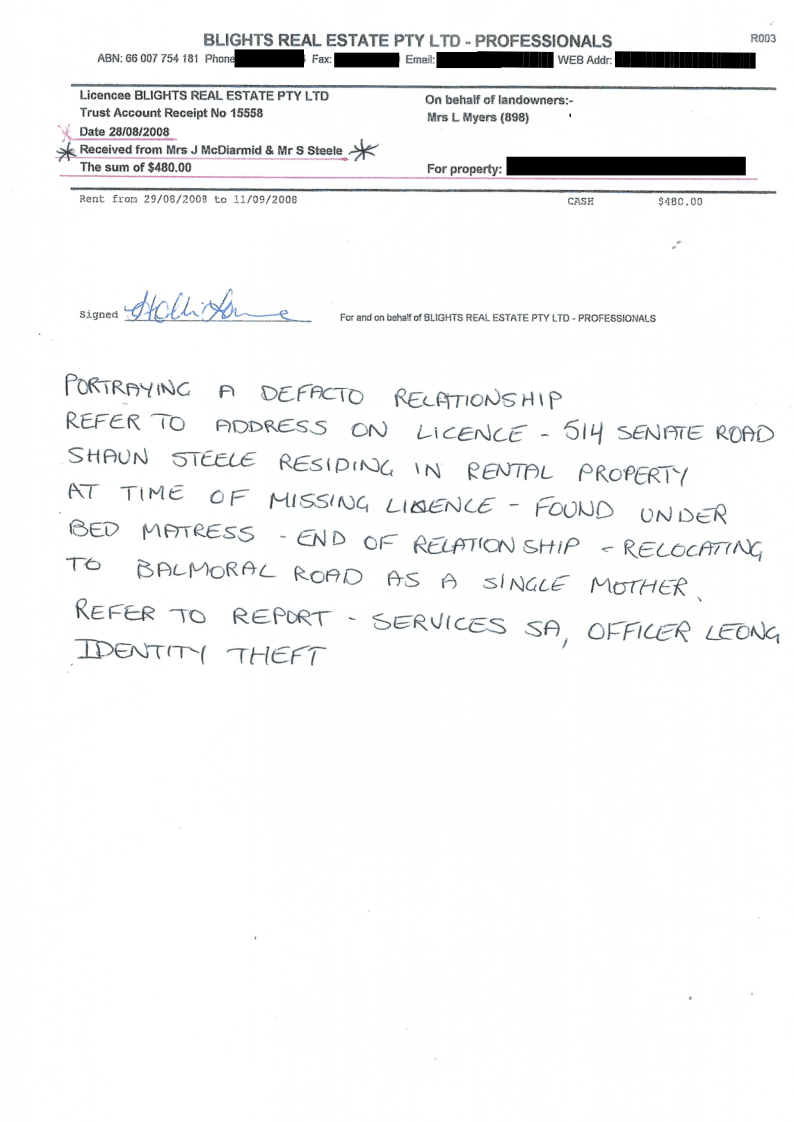 BLIGHTS REAL ESTATE PTY LTD - PROFESSIONALS
R003
ABN: 66 007 754 181 Phone Fax: Email: WEB Addr:
Licencee BLIGHTS REAL ESTATE PTY LTD
Trust Account Receipt No 15558
Date 28/08/2008
Received from Mrs J McDiarmid & Mr S Steele
The sum of $480.00
On behalf of landowners:-
Mrs L Myers (898)
For property:
Rent from 29/08/2008 to 11/09/2008 CASH $480.00
Signed
For and on behalf of BLIGHTS REAL ESTATE PTY LTD - PROFESSIONALS
PORTRAYING A DEFACTO RELATIONSHIP
REFER TO ADDRESS ON LICENCE - 514 SENATE ROAD
SHAUN STEELE RESIDING IN RENTAL PROPERTY
AT TIME OF MISSING LICENCE - FOUND UNDER
BED MATRESS - END OF RELATIONSHIP - RELOCATING
TO BALMORAL ROAD AS A SINGLE MOTHER.
REFER TO REPORT - SERVICES SA, OFFICER LEONG
IDENTITY THEFT